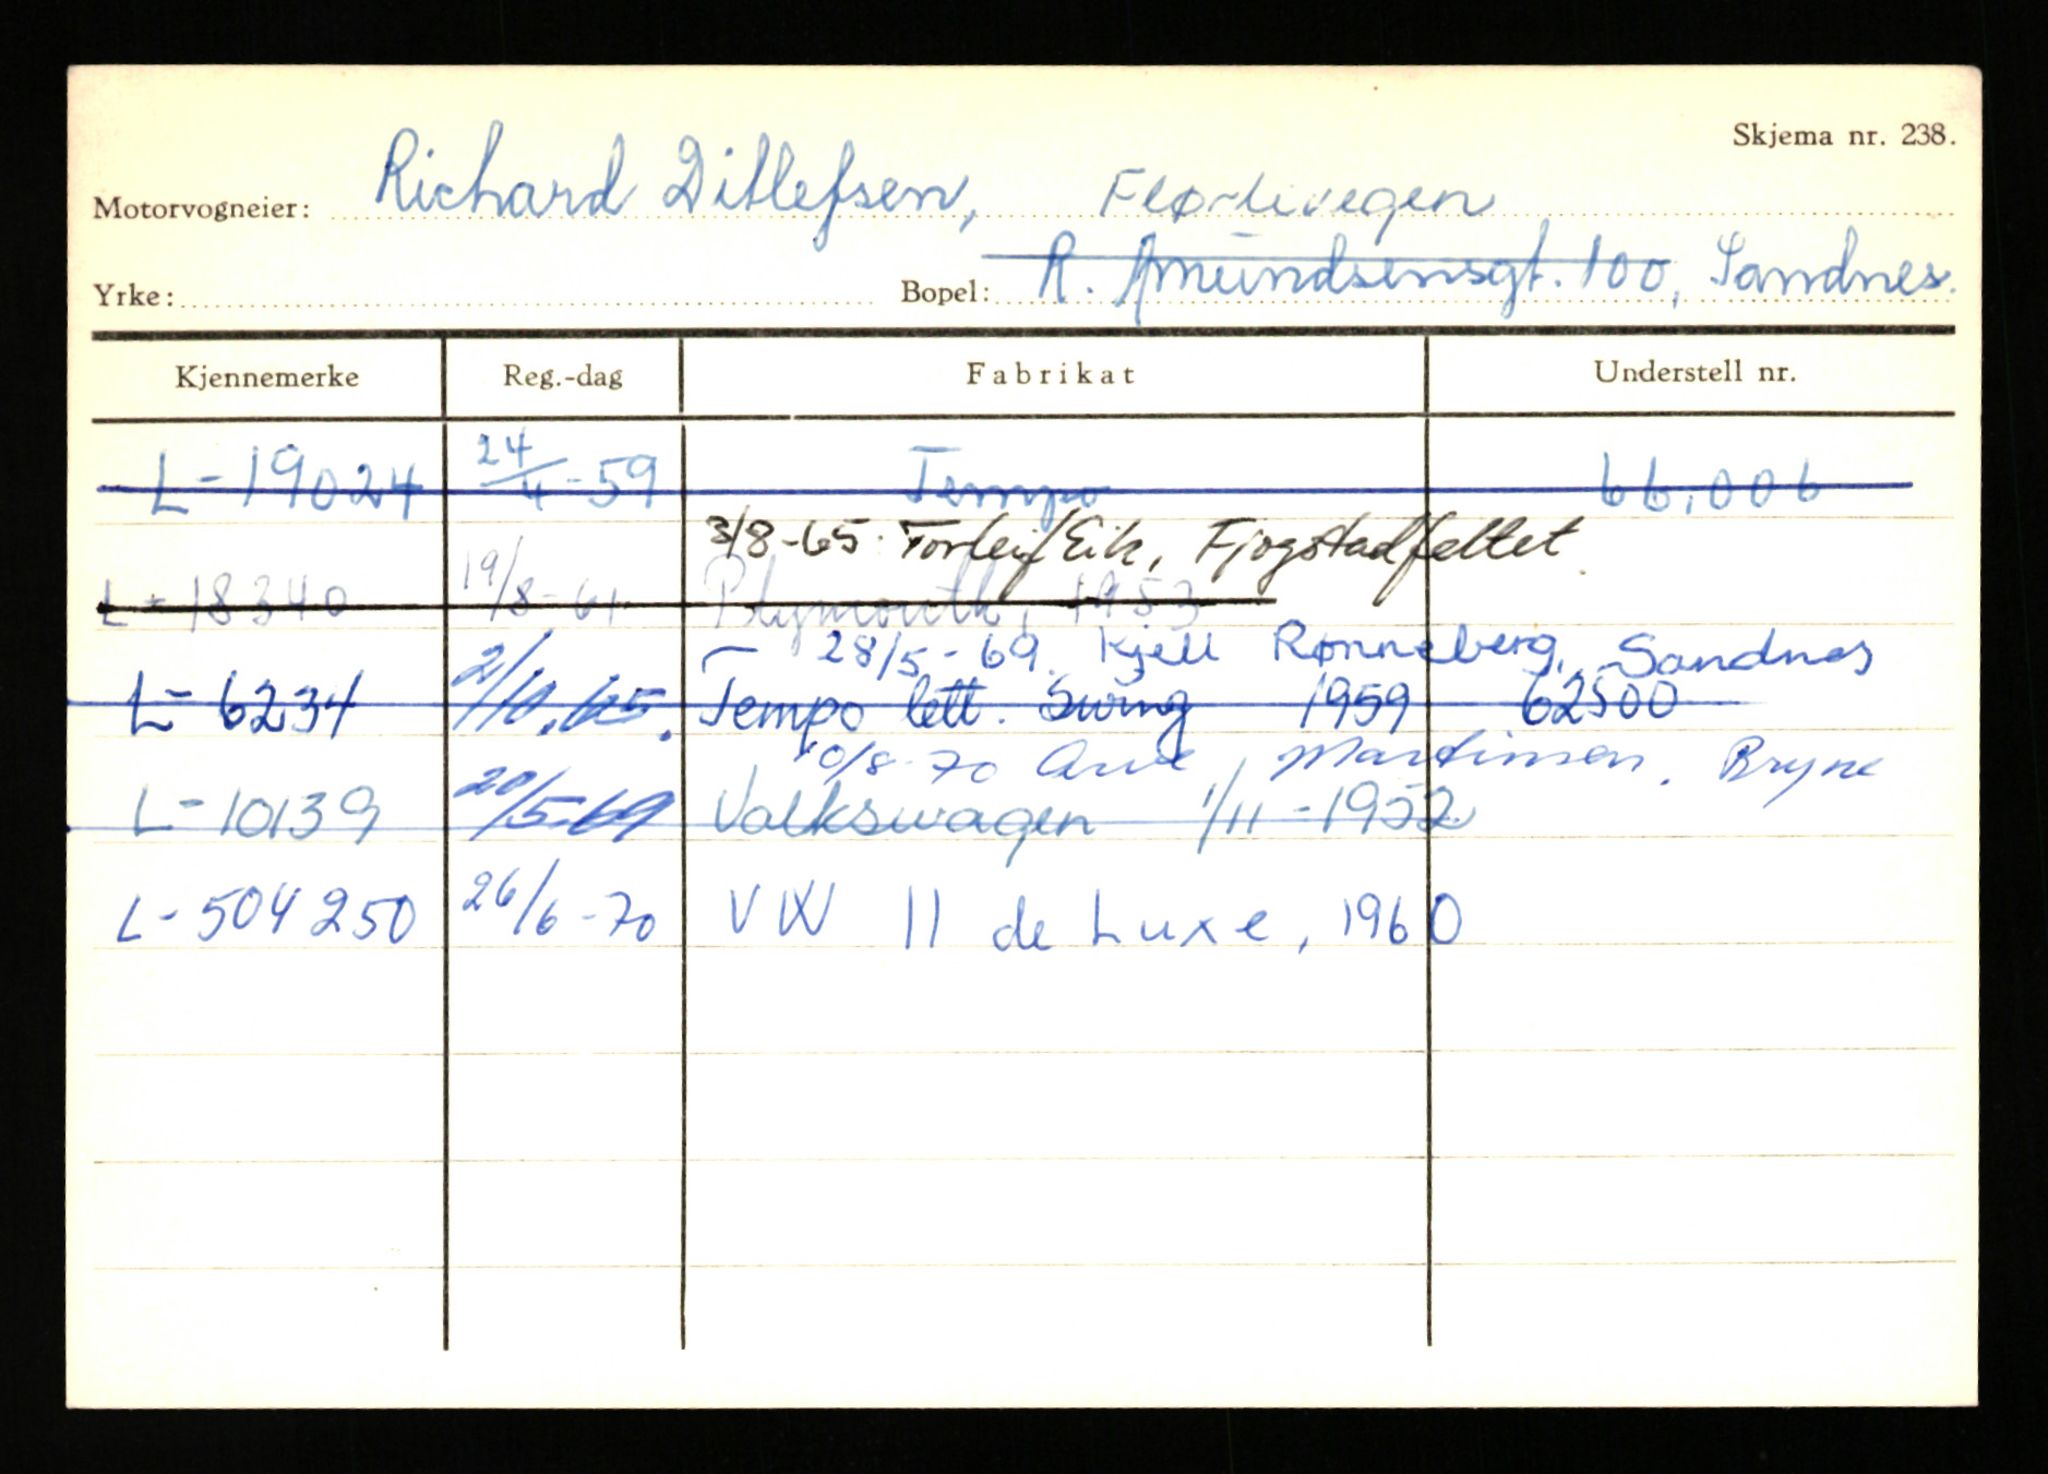 Skjema nr. 238.
Motorvogneier: Richard Ditlefsen, Flørlivegen
Yrke: Bopel: R. Amundsensgt. 100, Sandnes.
Kjennemerke Reg.-dag Fabrikat Understell nr.
L-19024 24/4-59 Tempo 66.006
3/8-65 Torleif Eik, Fjogstadfeltet
L-18340 19/8-61 Plymouth, 1953
28/5-69. Kjell Rønneberg, Sandnes
L-6234 2/10.65. Tempo lett. Swing 1959 62500
10/8-70 Martinsen, Bryne
L-10139 20/5-69 Volkswagen 1/11-1952
L-504250 26/6-70 VW 11 de Luxe, 1960